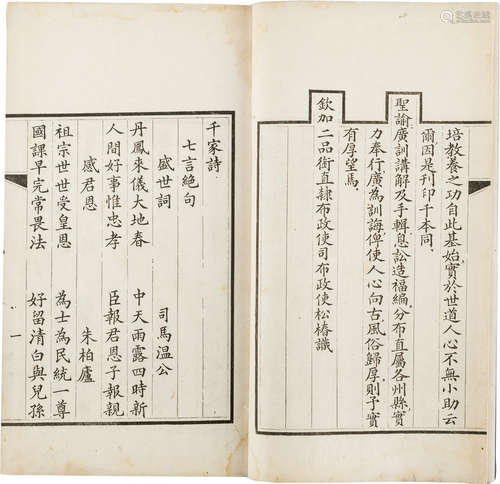 培教養之功自此基始實於世道人心不無小助云
爾因是刊印千本同
聖諭廣訓講解及手輯息訟造福編分布直屬各州縣實
力奉行廣為訓誨俾使人心向古風俗歸厚則予實
有厚望焉
欽加二品銜直隸布政使司布政使松椿識
千家詩
七言絕句
盛世詞 司馬溫公
丹鳳來儀大地春 中天雨露四時新
人間好事惟忠孝 臣報君恩子報親
感君恩 朱柏廬
祖宗世世受皇恩 為士為民統一尊
國課早完常畏法 好留清白與兒孫
一